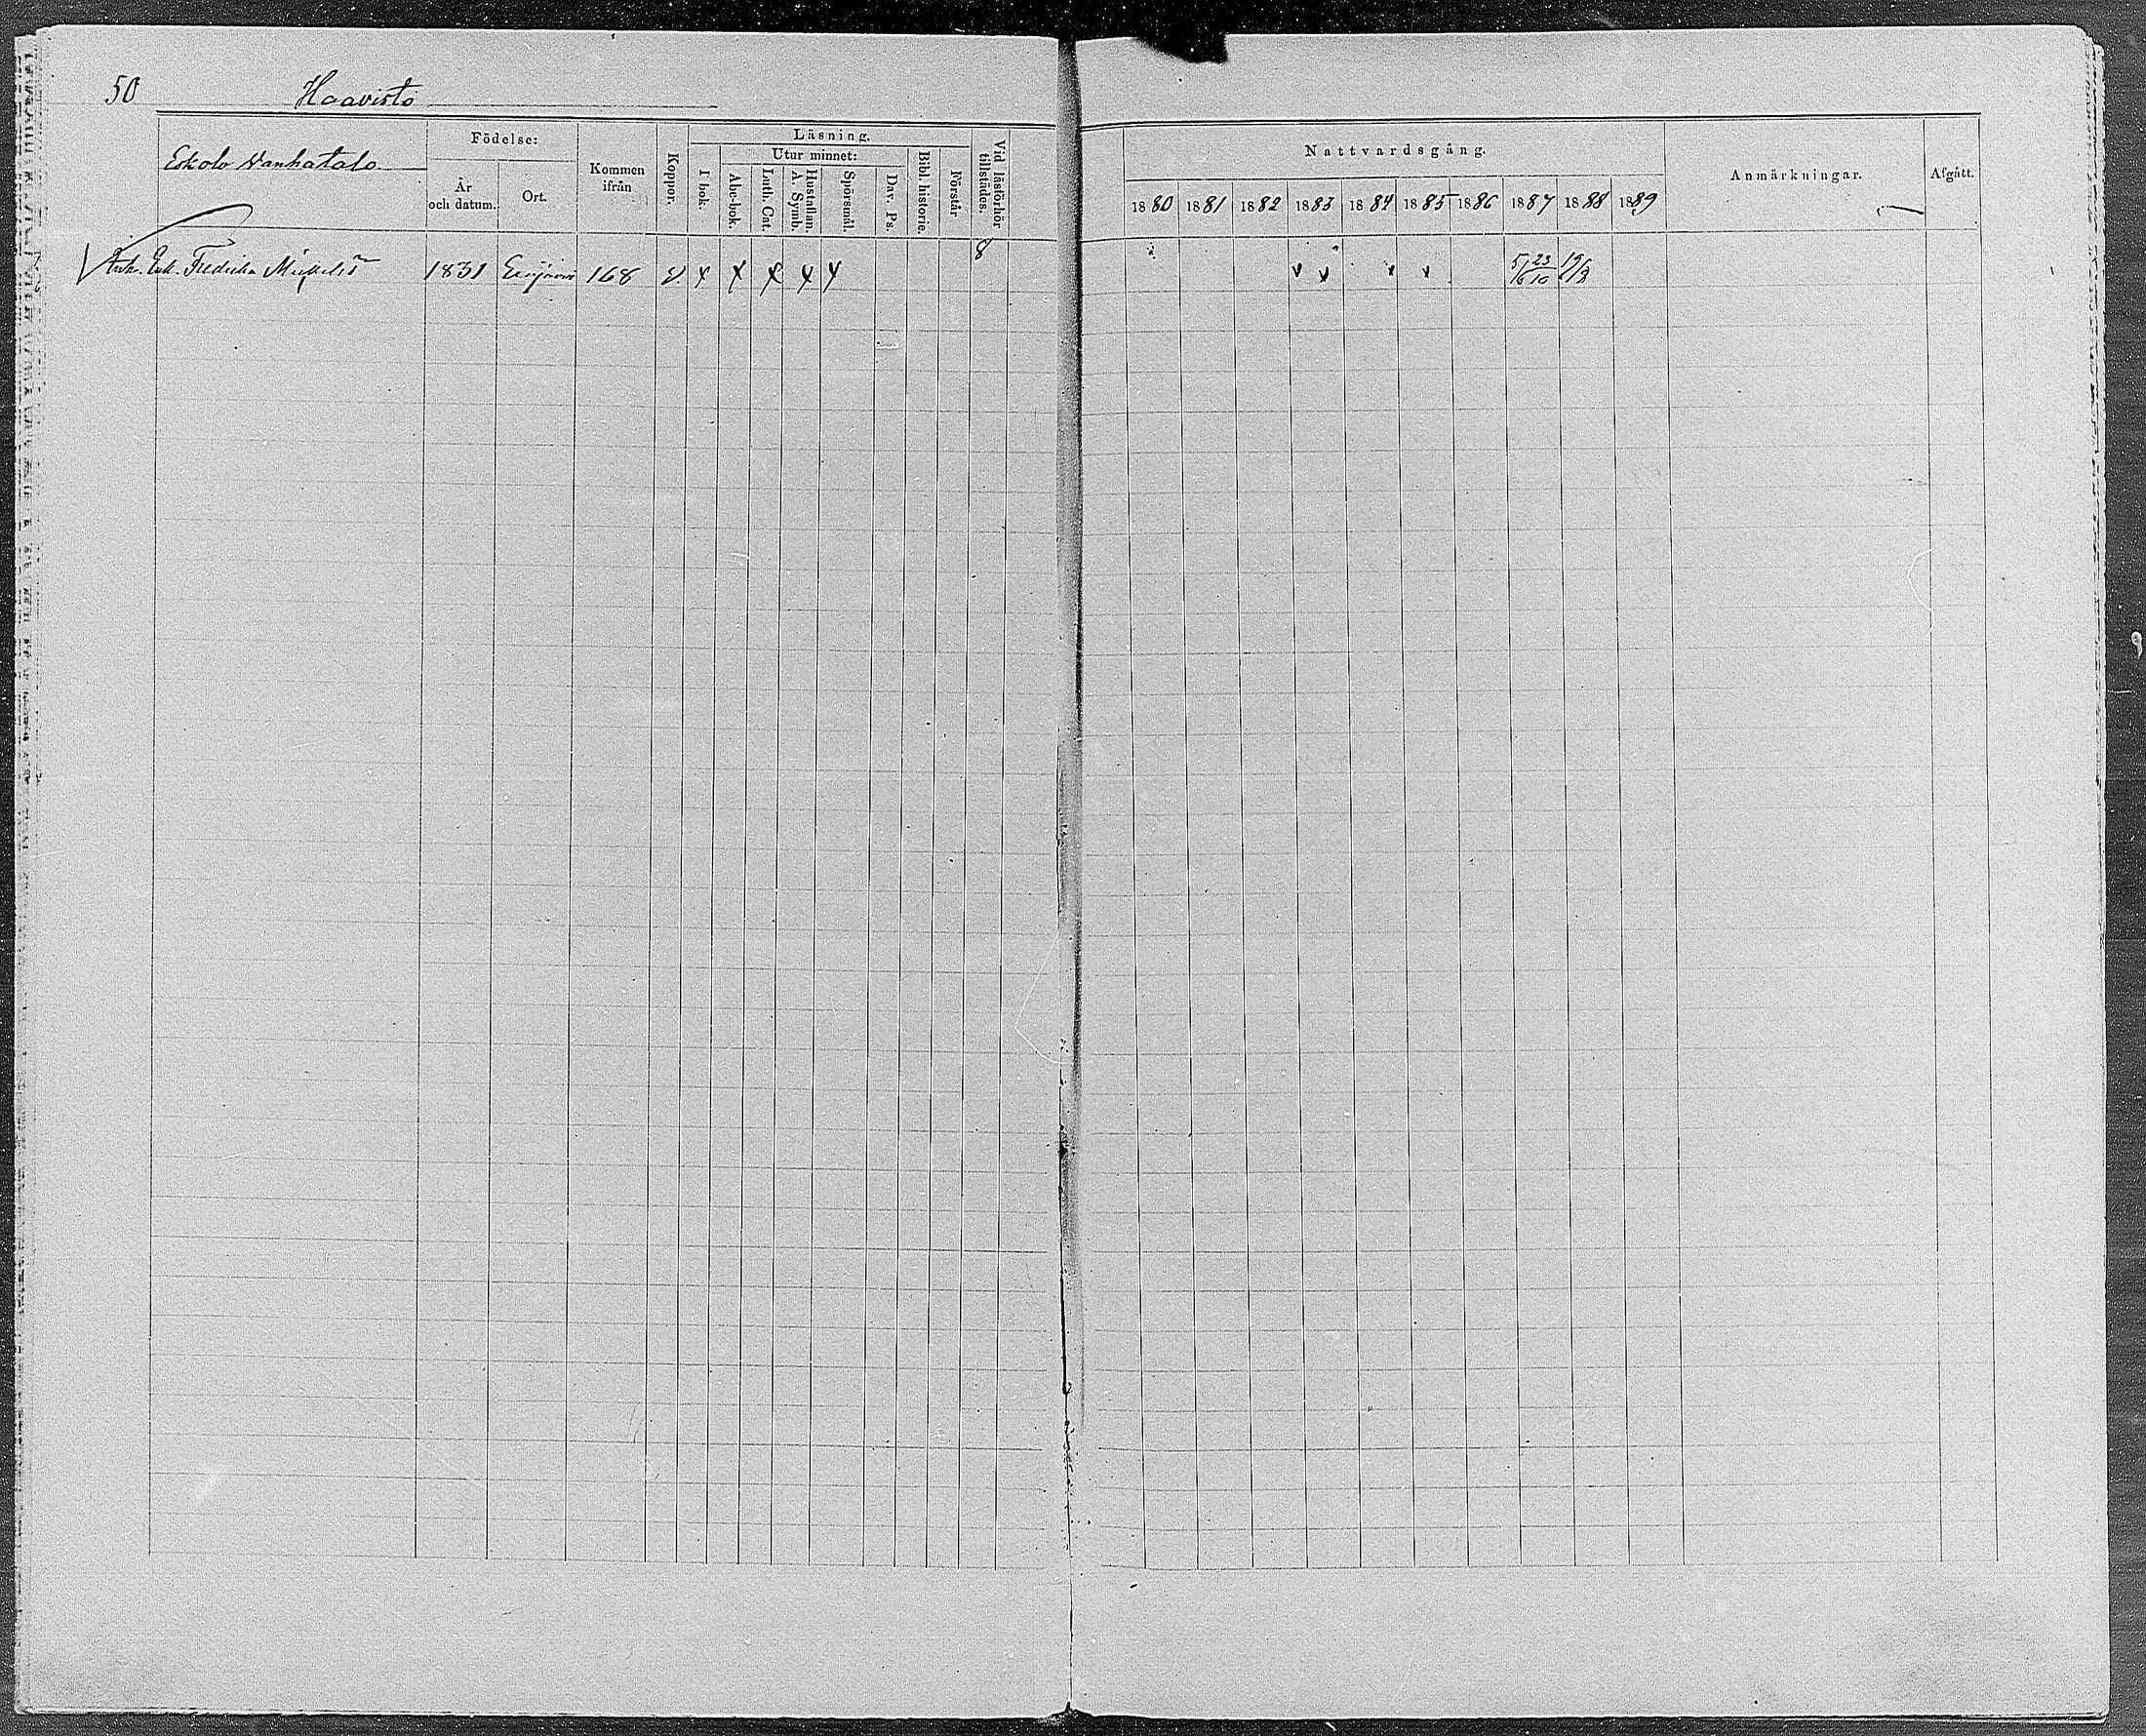 50 Haavisto
Födelse: Läsning. Nattvardsgång.
Eskola Wanhatalo Kommen ifrån Koppor. Utur minnet: Anmärkningar. Afgått.
År och datum. Ort. I bok. Abc-bok. Luth. Cat. Hustaflan. A. Symb. Spörsmål. Dav. Ps. Bibl. historie. Förstår Vid läsförhör tillstädes. 1880 1881 1882 1883 1884 1885 1886 1887 1888 1889
8
Enk. Fredrika 1831 168 v. x x x x x v v x x 5/6 23/10